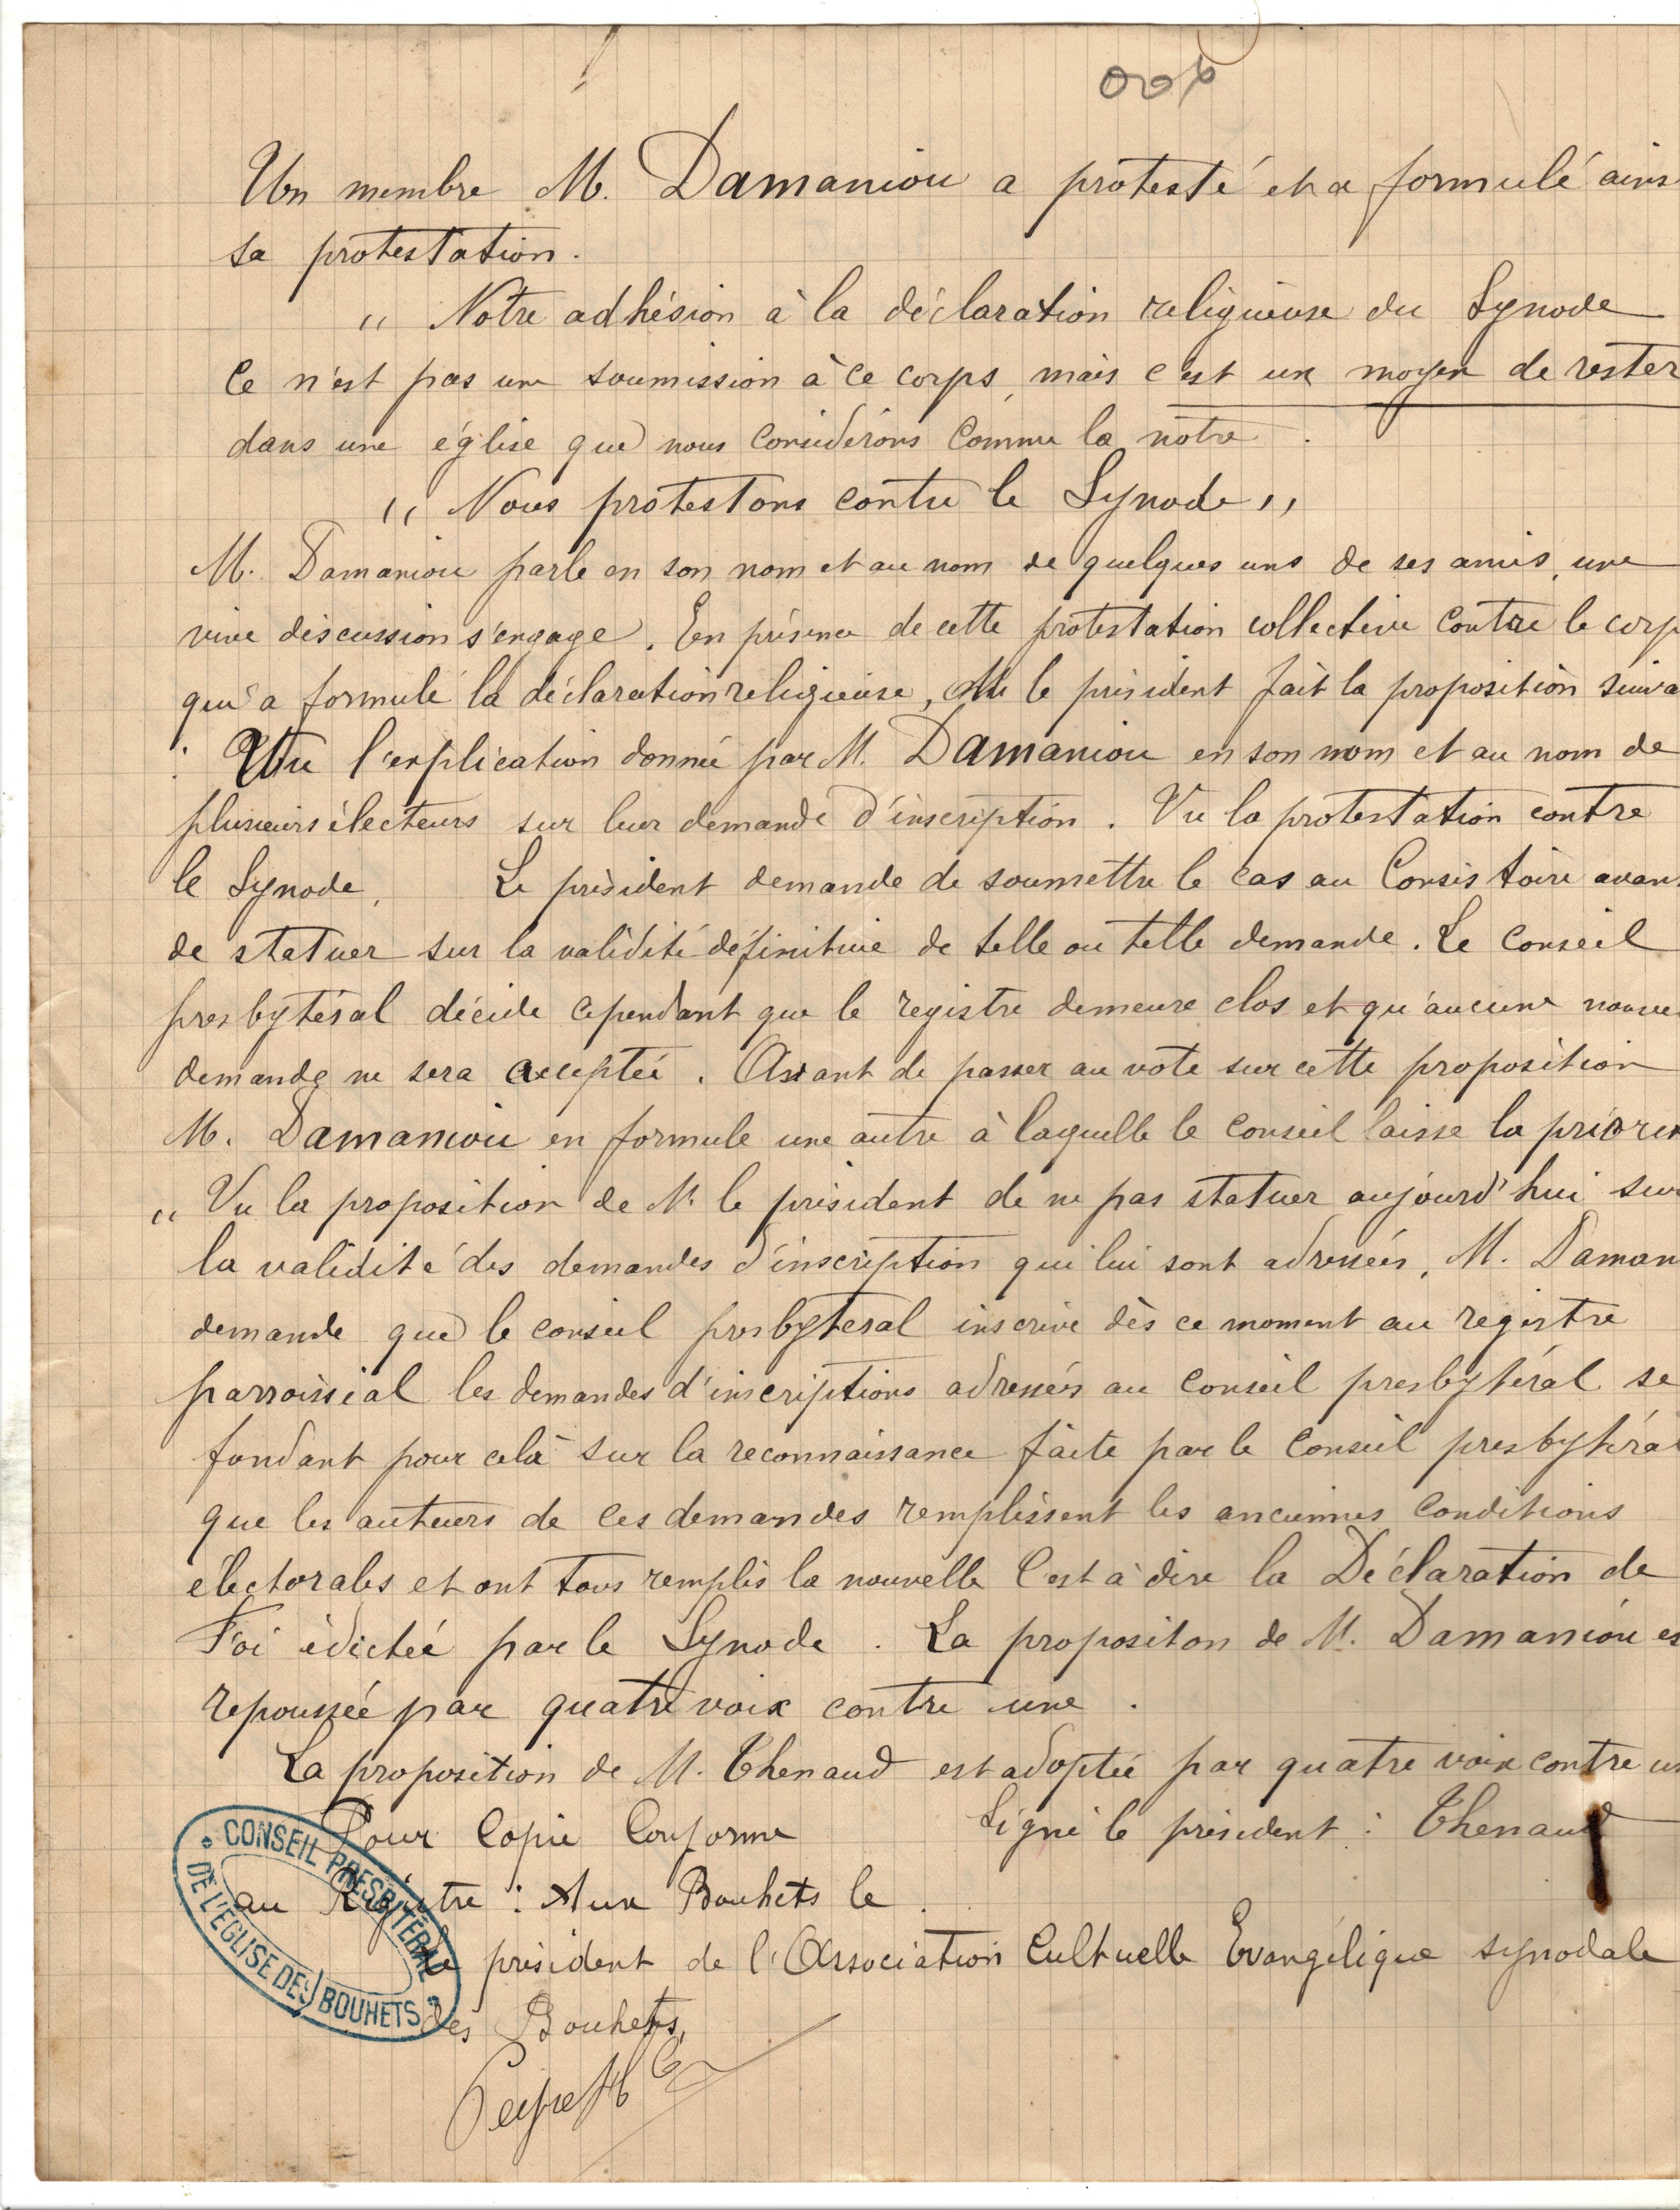 006
Un membre M. Damaniou a protesté et a formulé ains
sa protestation.
" Notre adhésion à la déclaration religieuse du Synode
Ce n'est pas une soumission à ce corps, mais c'est un moyen de rester
dans une église que nous considérons comme la nôtre.
" Nous protestons contre le Synode "
M. Damaniou parle en son nom et au nom de quelques uns de ses amis, une
vive discussion s'engage. En présence de cette protestation collective contre le corp
qui a formulé la déclaration religieuse, M. le président fait la proposition suiva
: Vu l'explication donnée par M. Damaniou en son nom et au nom de
plusieurs électeurs sur leur demande d'inscription. Vu la protestation contre
le Synode, Le président demande de soumettre le cas au Consistoire avan
de statuer sur la validité définitive de telle ou telle demande. Le Conseil
presbytéral décide cependant que le registre demeure clos et qu'aucune nouve
demande ne sera acceptée. Avant de passer au vote sur cette proposition
M. Damaniou en formule une autre à laquelle le Conseil laisse la priori
" Vu la proposition de M. le président de ne pas statuer aujourd'hui sur
la validité des demandes d'inscription qui lui sont adressées, M. Daman
demande que le conseil presbyteral inscrive dès ce moment au registre
parroissial les demandes d'inscriptions adressées au Conseil presbytéral se
fondant pour celà sur la reconnaissance faite par le Conseil presbytéral
que les auteurs de ces demandes remplissent les anciennes Conditions
électorales et ont tous remplis la nouvelle C'est à dire la Déclaration de
Foi édictée par le Synode. La propositon de M. Damaniou es
repoussée par quatre voix contre une.
La proposition de M. Thenaud est adoptée par quatre voix contre un
Pour Copie Conforme Signé le président : Thenaud
au Registre : Aux Bouhets le
le président de l'Association Cultuelle Evangélique synodale
des Bouhets,
CONSEIL PRESBYTÉRAL
DE L'ÉGLISE DES BOUHETS